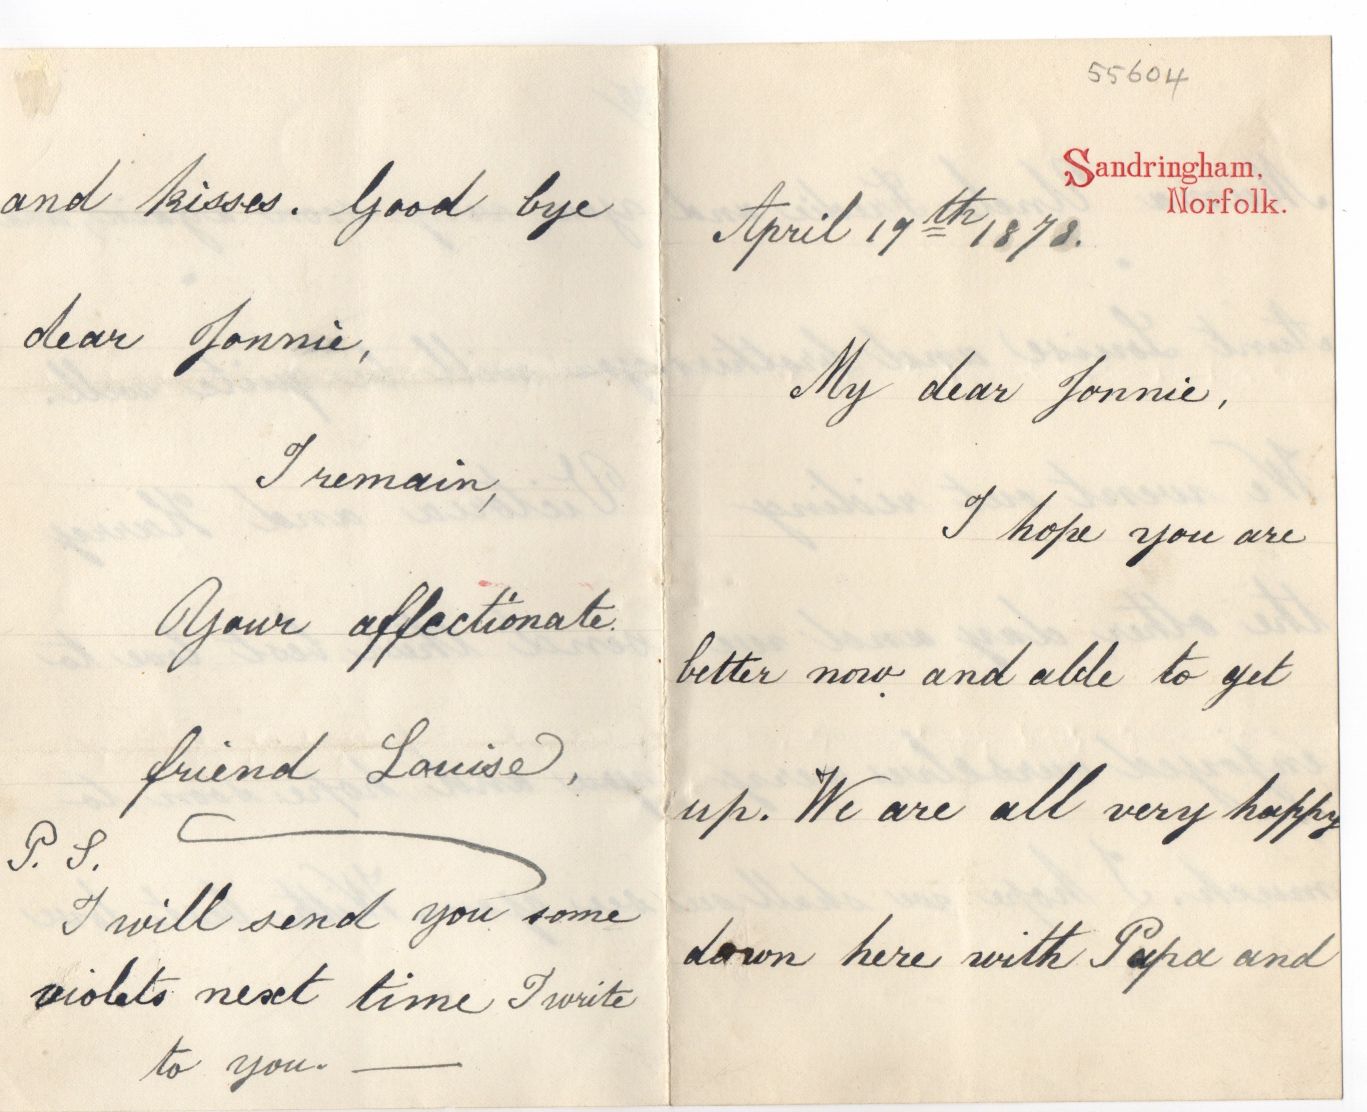 55604
Sandringham,
Norfolk.
April 19th 1878.
My dear Jonnie,
I hope you are
better now and able to get
up. We are all very happy
down here with Papa and
and kisses. Good bye
dear Jonnie,
I remain,
Your affectionate
friend Louise,
P. S.
I will send you some
violets next time I write
to you. —